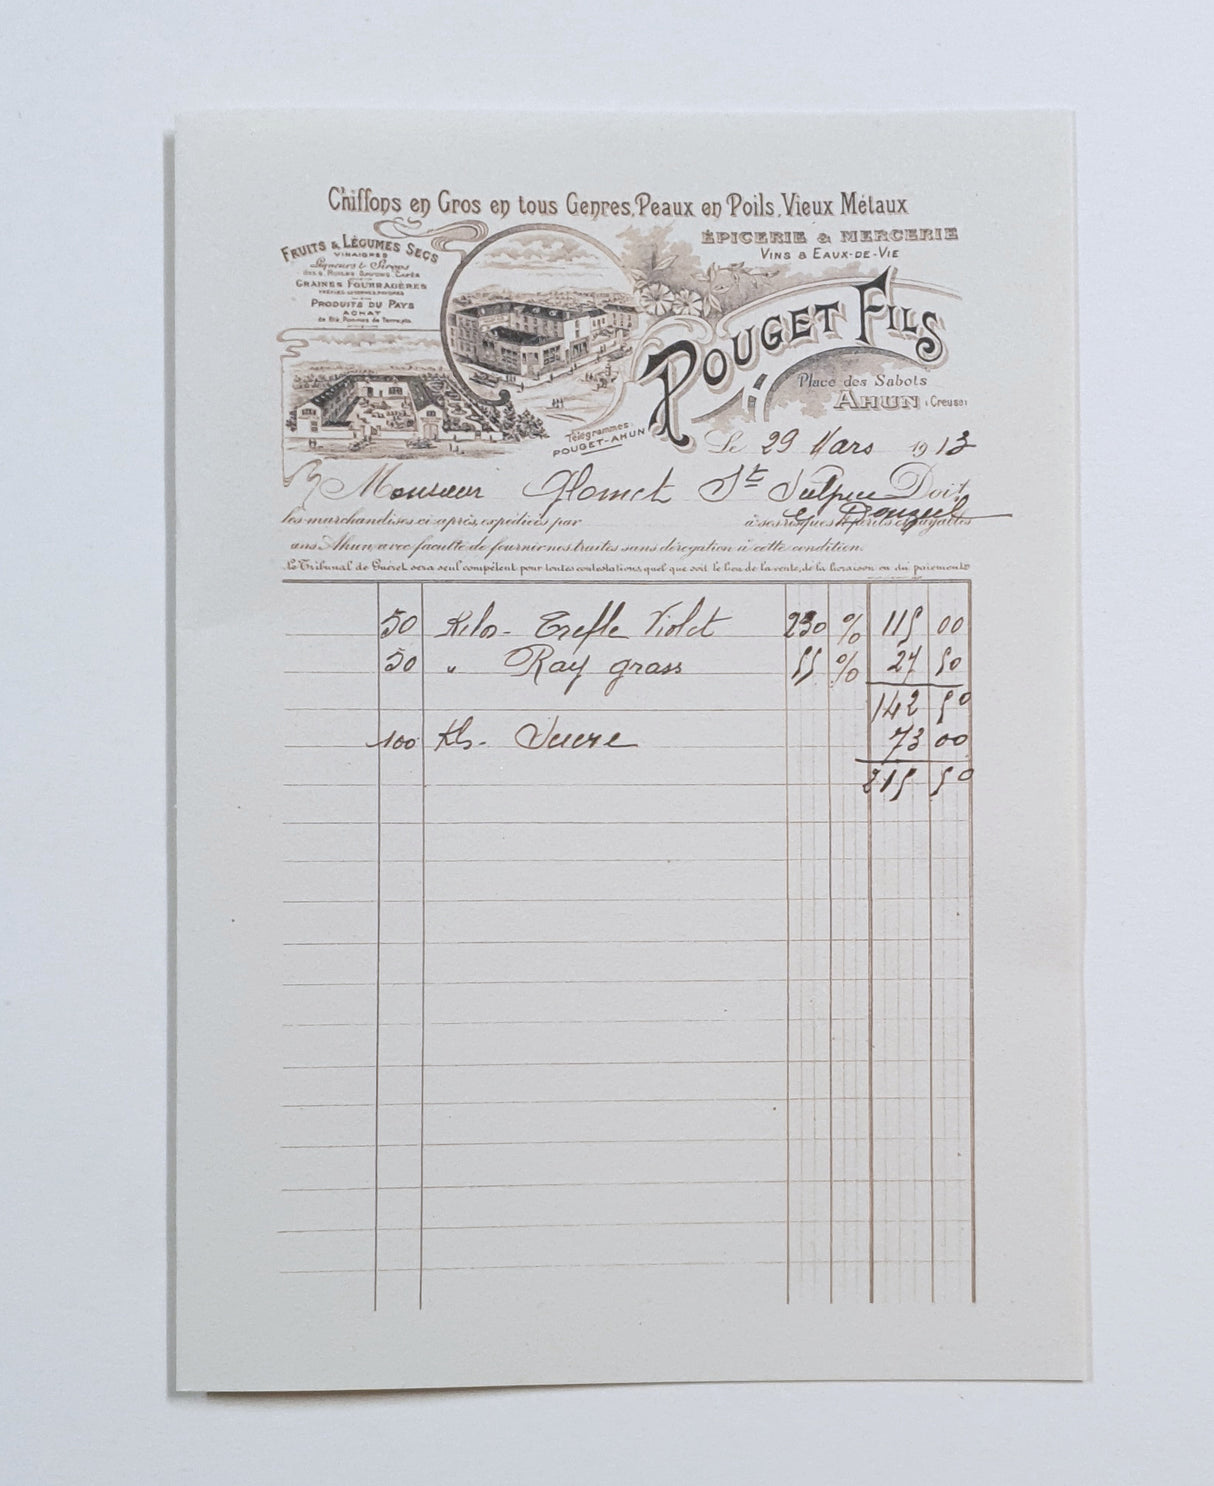 Chiffons en Gros en tous Genres, Peaux en Poils, Vieux Métaux
FRUITS & LÉGUMES SECS
VINAIGRES
Liqueurs & Sirops
GRAINES FOURRAGÈRES
PRODUITS DU PAYS
ACHAT
de Blé, Pommes de Terre, etc.
ÉPICERIE & MERCERIE
VINS & EAUX-DE-VIE
POUGET FILS
Place des Sabots
AHUN (Creuse)
Télégrammes:
POUGET-AHUN
Le 29 Mars 1913
M Monsieur Glomet St Sulpice Doit
le Donzeil
les marchandises ci-après, expédiées par à ses risques & périls et payables
dans Ahun, avec faculté de fournir nos traites sans dérogation à cette condition.
Le Tribunal de Guéret sera seul compétent pour toutes contestations quel que soit le lieu de la vente, de la livraison ou du paiement.
50 Kilos - Trefle Violet 230 % 115 00
50 " Ray grass 55 % 27 50
142 50
100 Kls - Sucre 73 00
215 50